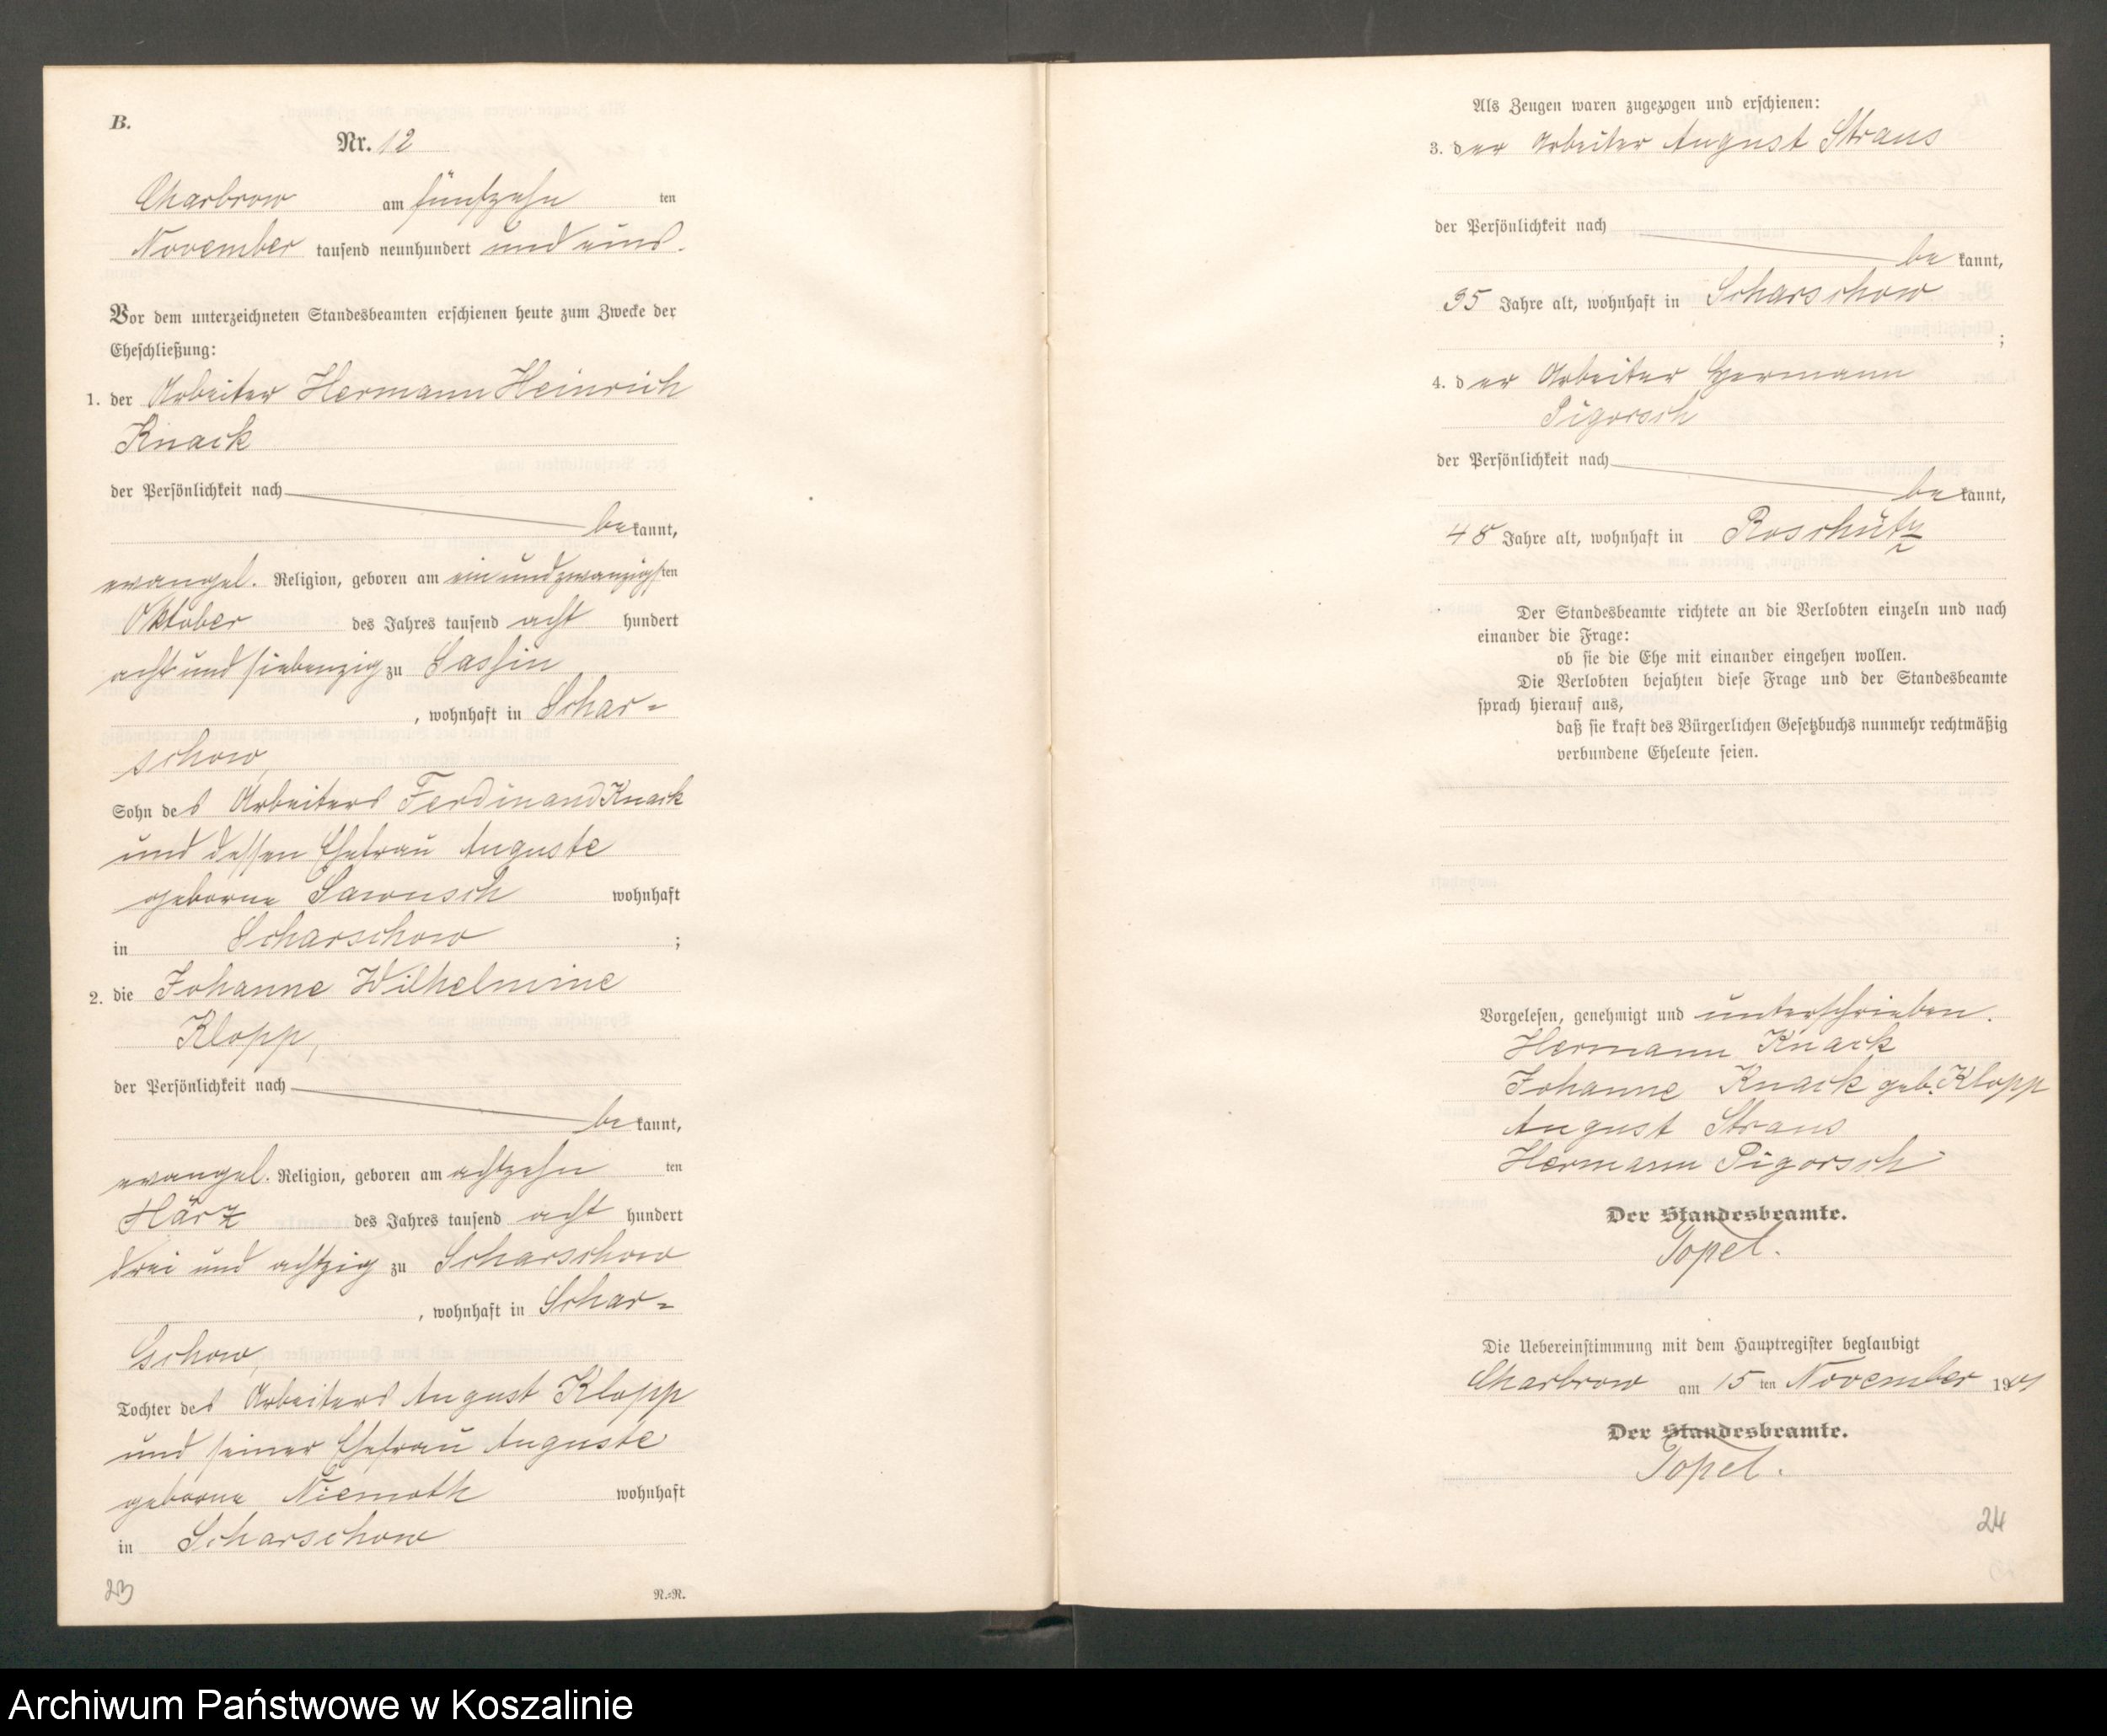 B.
Nr. 12
Charbrow am fünfzehn ten
November tausend neunhundert und eins.
Vor dem unterzeichneten Standesbeamten erschienen heute zum Zwecke der
Eheschließung:
1. der Arbeiter Hermann Heinrich
Knack
der Persönlichkeit nach
be kannt,
evangel. Religion, geboren am ein und zwanzigsten
Oktober des Jahres tausend acht hundert
acht und siebenzig zu Sassin
, wohnhaft in Schar=
schow,
Sohn des Arbeiters Ferdinand Knack
und dessen Ehefrau Auguste
geborne Sawusch wohnhaft
in Scharschow ;
2. die Johanne Wilhelmine
Klopp,
der Persönlichkeit nach
be kannt,
evangel. Religion, geboren am achtzehn ten
März des Jahres tausend acht hundert
drei und achtzig zu Scharschow
, wohnhaft in Schar=
schow,
Tochter des Arbeiters August Klopp
und seiner Ehefrau Auguste
geborne Niemoth wohnhaft
in Scharschow
23 R.=R.
Als Zeugen waren zugezogen und erschienen:
3. der Arbeiter August Straus
der Persönlichkeit nach
be kannt,
35 Jahre alt, wohnhaft in Scharschow
;
4. der Arbeiter Hermann
Pigorsch
der Persönlichkeit nach
be kannt,
48 Jahre alt, wohnhaft in Roschütz
Der Standesbeamte richtete an die Verlobten einzeln und nach
einander die Frage:
ob sie die Ehe mit einander eingehen wollen.
Die Verlobten bejahten diese Frage und der Standesbeamte
sprach hierauf aus,
daß sie kraft des Bürgerlichen Gesetzbuchs nunmehr rechtmäßig
verbundene Eheleute seien.
Vorgelesen, genehmigt und unterschrieben.
Hermann Knack
Johanne Knack geb. Klopp
August Straus
Hermann Pigorsch
Der Standesbeamte.
Topel.
Die Uebereinstimmung mit dem Hauptregister beglaubigt
Charbrow am 15 ten November 1901
Der Standesbeamte.
Topel.
24
Archiwum Państwowe w Koszalinie